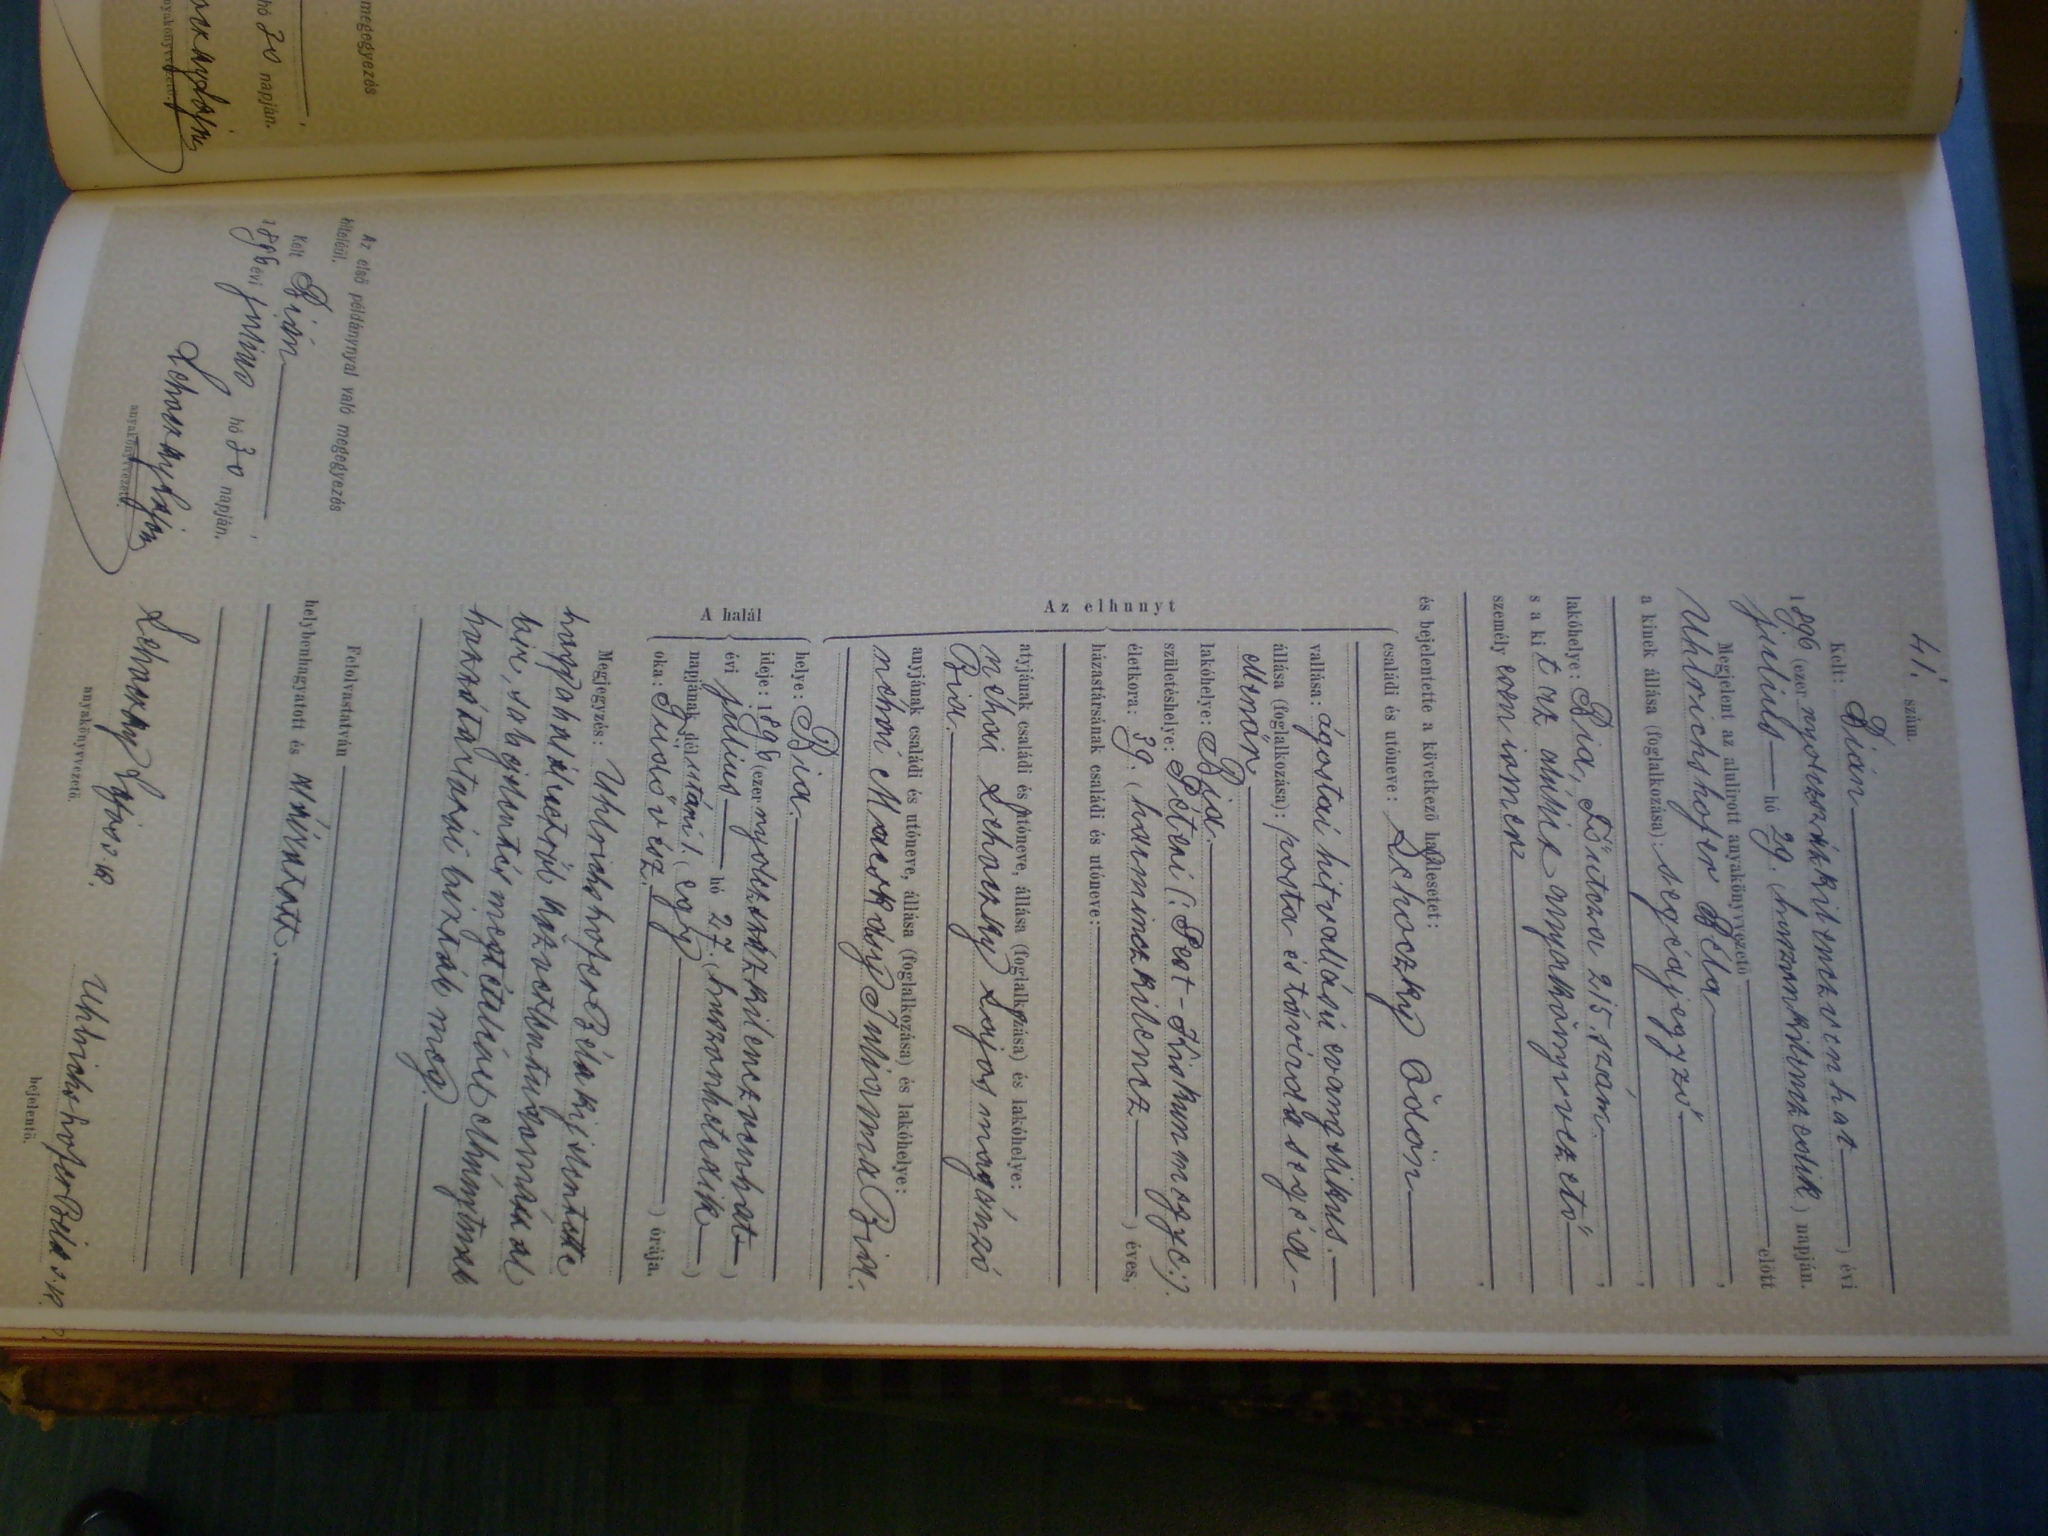 megegyezés
hó 30 napján.
anyakönyvvezető.
41. szám.
Kelt: Bián
1896 (ezer nyolczszázkilenczvenhat) évi
julius hó 29. (huszonkilenczedik) napján.
Megjelent az alulirott anyakönyvvezető előtt
Uhlrichshofer Béla,
a kinek állása (foglalkozása): segédjegyző,
lakóhelye: Bia, Főutcza 215. szám,
s a kit az alulirt anyakönyvvezető
személyesen ismer,
és bejelentette a következő halálesetet:
Az elhunyt
családi és utóneve: Schoczky Ödön
vallása: ágostai hitvallású evangelikus.
állása (foglalkozása): posta és távirda segéd-
lakóhelye: Bia.
születéshelye: Péteri (: Pest-Kiskunmegye:).
életkora: 39. (harminczkilencz) éves,
házastársának családi és utóneve:
atyjának családi és utóneve, állása (foglalkozása) és lakóhelye:
néhai Schoczky Lajos magánzó
Bia.
anyjának családi és utóneve, állása (foglalkozása) és lakóhelye:
néhai Macskásy Zsuzsanna Bia.
A halál
helye: Bia.
ideje: 1896 (ezer nyolczszázkilenczvenhat)
évi julius hó 27. (huszonhetedik)
napjának délutáni 1 (egy) órája.
oka: Tüdővész.
Megjegyzés: Uhlrichshofer Béla kijelentette
hogy a halálesetről közvetlen tudomással
bir, s a bejelentés megtételével elhúnytnak
hozzátartozói bizták meg.
Felolvastatván
helybenhagyatott és aláiratott.
Schoczky Lajos s.k.
anyakönyvvezető.
Uhlrichshofer Béla s.k.
bejelentő.
Az első példánynyal való megegyezés
hiteléül.
Kelt Bián,
1896 évi julius hó 30 napján.
Schoczky Lajos
anyakönyvvezető.